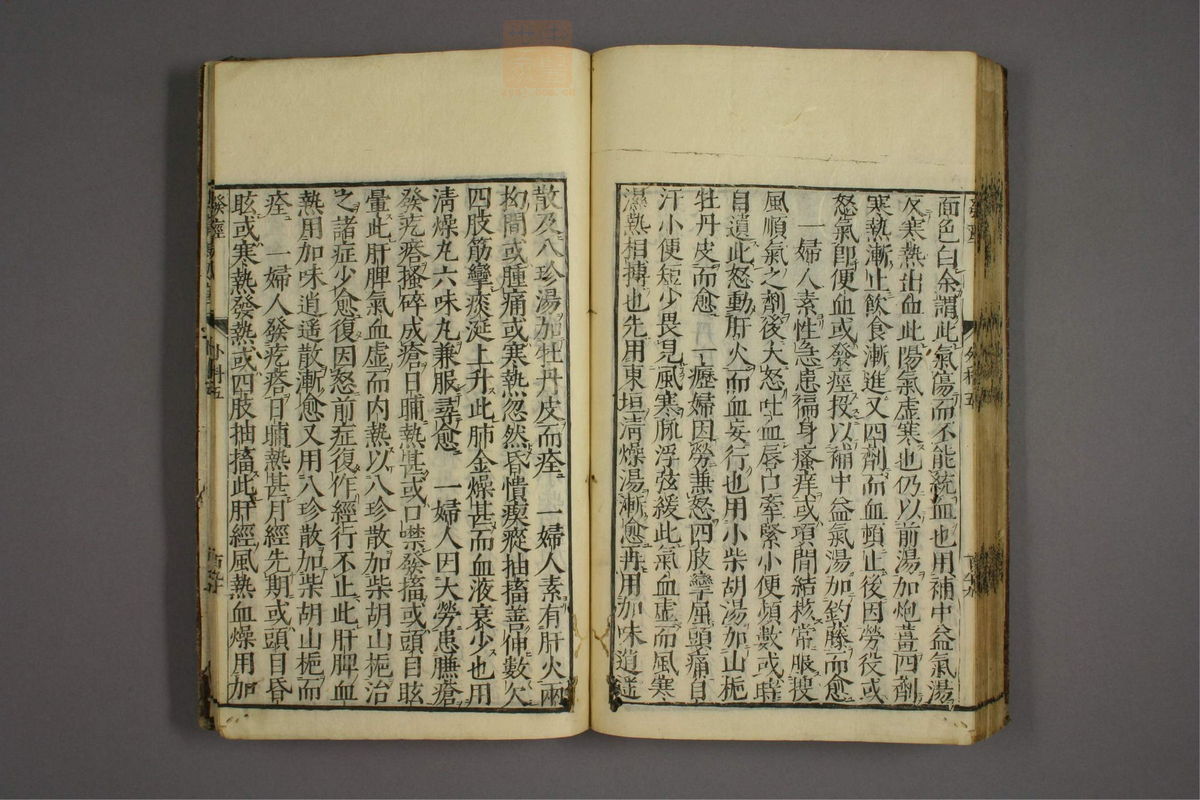 面色白余謂此氣傷而不能統血也用補中益氣湯
及寒熱出血此陽氣虛寒也仍以前湯加炮薑四劑
寒熱漸止飲食漸進又四劑而血頓止後因勞役或
怒氣卽便血或發痙投以補中益氣湯加釣藤而愈
一婦人素性急患徧身瘙痒或項間結核常服搜
風順氣之劑後大怒吐血唇口牽緊小便頻數或時
自遺此怒動肝火而血妄行也用小柴胡湯加山梔
牡丹皮而愈 一瘂婦因勞兼怒四肢攣屈頭痛自
汗小便短少畏見風寒脈浮弦緩此氣血虛而風寒
濕熱相搏也先用東垣淸燥湯漸愈再用加味逍遙
散及八珍湯加牡丹皮而痊 一婦人素有肝火兩
拗間或腫痛或寒熱忽然昏憒瘈瘲抽搐善伸數欠
四肢筋攣痰涎上升此肺金燥甚而血液衰少也用
淸燥丸六味丸兼服尋愈 一婦人因大勞患臁瘡
發疙瘩搔碎成瘡日晡熱甚或口噤發搐或頭目眩
暈此肝脾氣血虛而內熱以八珍散加柴胡山梔治
之諸症少愈復因怒前症復作經行不止此肝脾血
熱用加味逍遙散漸愈又用八珍散加柴胡山梔而
痊 一婦人發疙瘩日晡熱甚月經先期或頭目昏
眩或寒熱發熱或四肢抽搐此肝經風熱血燥用加
發痙
外科五